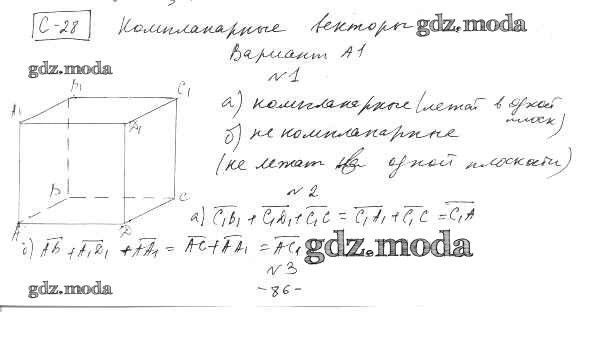 С-28 Компланарные векторы gdz.moda
Вариант А1
gdz.moda
№1
B1 C1
A1 D1
а) компланарные (лежат в одной плоск)
б) не компланарные
(не лежат на одной плоскости)
B C
A D
№2
а) C1B1 + C1D1 + C1C = C1A1 + C1C = C1A
б) AB + A1D1 + AA1 = AC + AA1 = AC1
gdz.moda
№3
gdz.moda
-86-